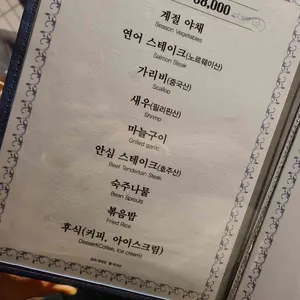 68,000
계절 야채
Season Vegetables
연어 스테이크(노르웨이산)
Salmon Steak
가리비(중국산)
Scallop
새우(필리핀산)
Shrimp
마늘구이
Grilled garlic
안심 스테이크(호주산)
Beef Tenderloin Steak
숙주나물
Bean Sprouts
볶음밥
Fried Rice
후식(커피, 아이스크림)
Dessert(Coffee, Ice cream)